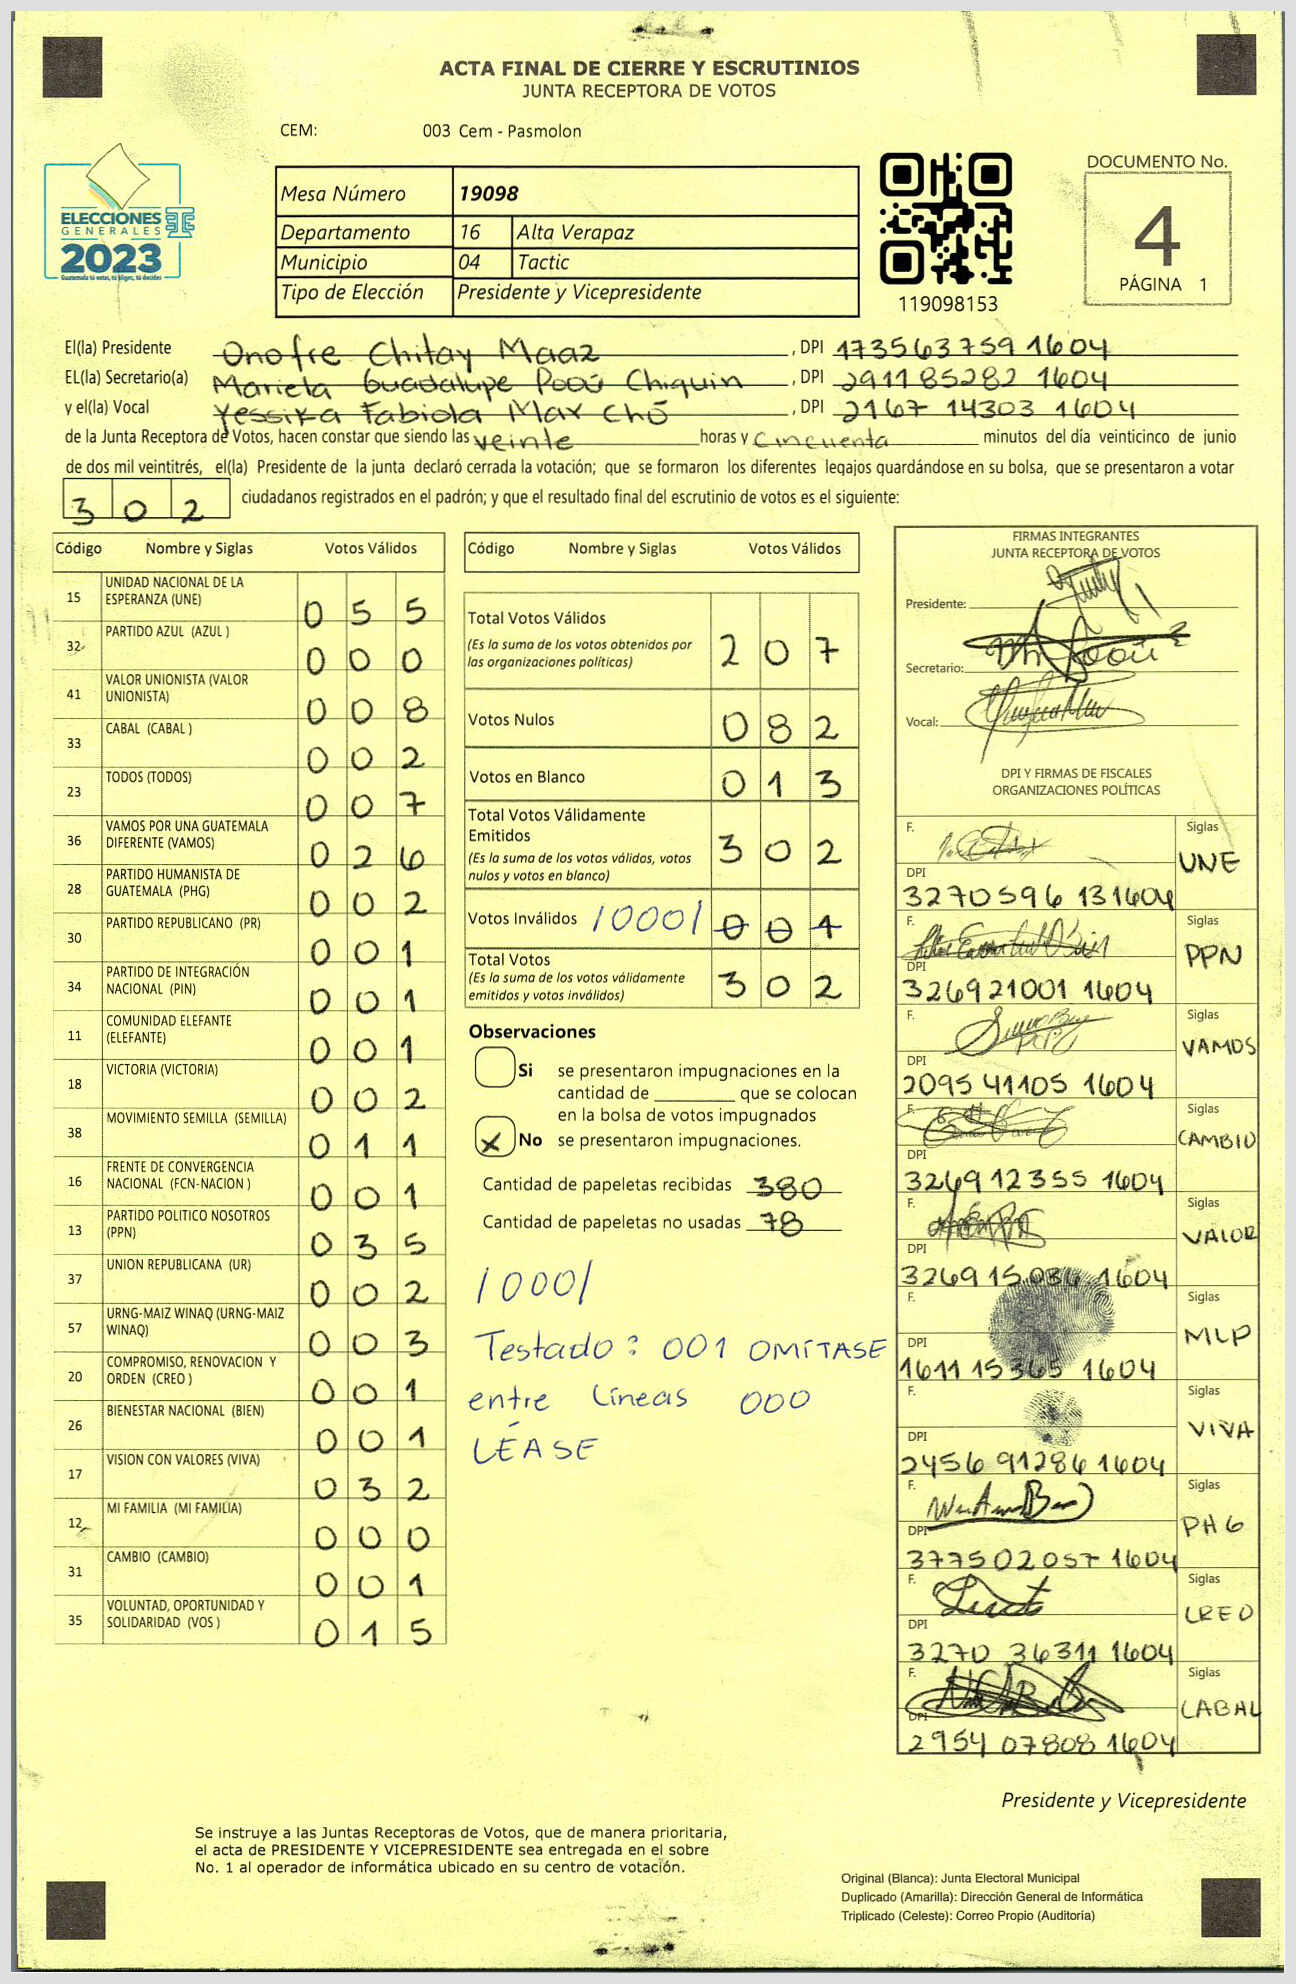 ACTA FINAL DE CIERRE Y ESCRUTINIOS
JUNTA RECEPTORA DE VOTOS
CEM: 003 Cem - Pasmolon
ELECCIONES
GENERALES
2023
Guatemala tú votas, tú eliges, tú decides
Mesa Número 19098
Departamento 16 Alta Verapaz
Municipio 04 Tactic
Tipo de Elección Presidente y Vicepresidente
119098153
DOCUMENTO No.
4
PÁGINA 1
El(la) Presidente Onofre Chitay Maaz , DPI 173563759 1604
EL(la) Secretario(a) Mariela Guadalupe Pooú Chiquin , DPI 291185282 1604
y el(la) Vocal Yessika Fabiola Max Chó , DPI 2167 14303 1604
de la Junta Receptora de Votos, hacen constar que siendo las veinte horas y cincuenta minutos del día veinticinco de junio
de dos mil veintitrés, el(la) Presidente de la junta declaró cerrada la votación; que se formaron los diferentes legajos guardándose en su bolsa, que se presentaron a votar
302 ciudadanos registrados en el padrón; y que el resultado final del escrutinio de votos es el siguiente:
Código Nombre y Siglas Votos Válidos
15 UNIDAD NACIONAL DE LA ESPERANZA (UNE) 055
32 PARTIDO AZUL (AZUL ) 000
41 VALOR UNIONISTA (VALOR UNIONISTA) 008
33 CABAL (CABAL ) 002
23 TODOS (TODOS) 007
36 VAMOS POR UNA GUATEMALA DIFERENTE (VAMOS) 026
28 PARTIDO HUMANISTA DE GUATEMALA (PHG) 002
30 PARTIDO REPUBLICANO (PR) 001
34 PARTIDO DE INTEGRACIÓN NACIONAL (PIN) 001
11 COMUNIDAD ELEFANTE (ELEFANTE) 001
18 VICTORIA (VICTORIA) 002
38 MOVIMIENTO SEMILLA (SEMILLA) 011
16 FRENTE DE CONVERGENCIA NACIONAL (FCN-NACION ) 001
13 PARTIDO POLITICO NOSOTROS (PPN) 035
37 UNION REPUBLICANA (UR) 002
57 URNG-MAIZ WINAQ (URNG-MAIZ WINAQ) 003
20 COMPROMISO, RENOVACION Y ORDEN (CREO ) 001
26 BIENESTAR NACIONAL (BIEN) 001
17 VISION CON VALORES (VIVA) 032
12 MI FAMILIA (MI FAMILIA) 000
31 CAMBIO (CAMBIO) 001
35 VOLUNTAD, OPORTUNIDAD Y SOLIDARIDAD (VOS ) 015
Código Nombre y Siglas Votos Válidos
Total Votos Válidos 207
(Es la suma de los votos obtenidos por
las organizaciones políticas)
Votos Nulos 082
Votos en Blanco 013
Total Votos Válidamente
Emitidos 302
(Es la suma de los votos válidos, votos
nulos y votos en blanco)
Votos Inválidos /000/ 001
Total Votos 302
(Es la suma de los votos válidamente
emitidos y votos inválidos)
Observaciones
Si se presentaron impugnaciones en la
cantidad de ________ que se colocan
en la bolsa de votos impugnados
X No se presentaron impugnaciones.
Cantidad de papeletas recibidas 380
Cantidad de papeletas no usadas 78
/000/
Testado: 001 OMÍTASE
entre líneas 000
LÉASE
FIRMAS INTEGRANTES
JUNTA RECEPTORA DE VOTOS
Presidente:
Secretario:
Vocal:
DPI Y FIRMAS DE FISCALES
ORGANIZACIONES POLÍTICAS
F. Siglas UNE
DPI 3270596 131604
F. Siglas PPN
DPI 326921001 1604
F. Siglas VAMOS
DPI 2095 41105 1604
F. Siglas CAMBIO
DPI 326912355 1604
F. Siglas VALOR
DPI 3269 15 1604
F. Siglas MLP
DPI 1611 15365 1604
F. Siglas VIVA
DPI 2456 91286 1604
F. Siglas PHG
DPI 377502057 1604
F. Siglas CREO
DPI 3270 36311 1604
F. Siglas CABAL
DPI 2954 07808 1604
Presidente y Vicepresidente
Se instruye a las Juntas Receptoras de Votos, que de manera prioritaria,
el acta de PRESIDENTE Y VICEPRESIDENTE sea entregada en el sobre
No. 1 al operador de informática ubicado en su centro de votación.
Original (Blanca): Junta Electoral Municipal
Duplicado (Amarilla): Dirección General de Informática
Triplicado (Celeste): Correo Propio (Auditoría)